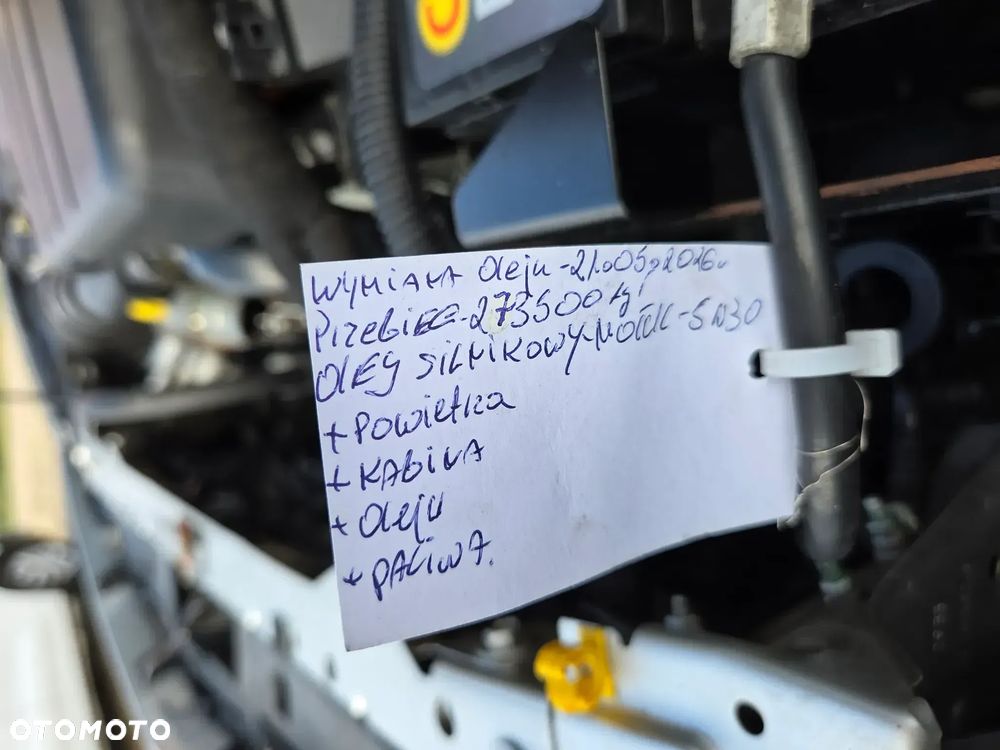 WYMIANA Oleju - 21.05.2026.
Przebieg - 273500 ty
OLEJ SILNIKOWY - MOTUL - 5W30
+ POWIETRZA
+ KABINA
+ Oleju
+ PALIWA.
OTOMOTO